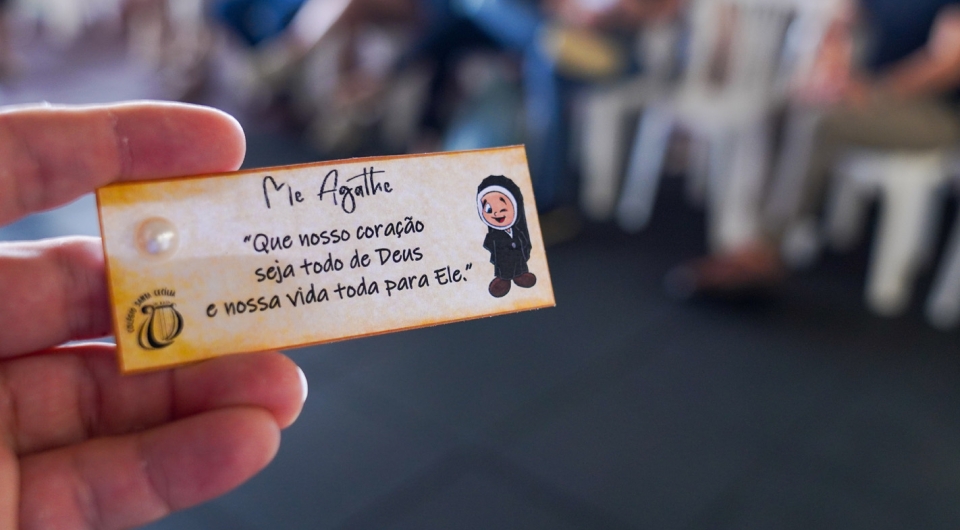 Me Agathe
"Que nosso coração
seja todo de Deus
e nossa vida toda para Ele."
COLÉGIO SANTA CECÍLIA